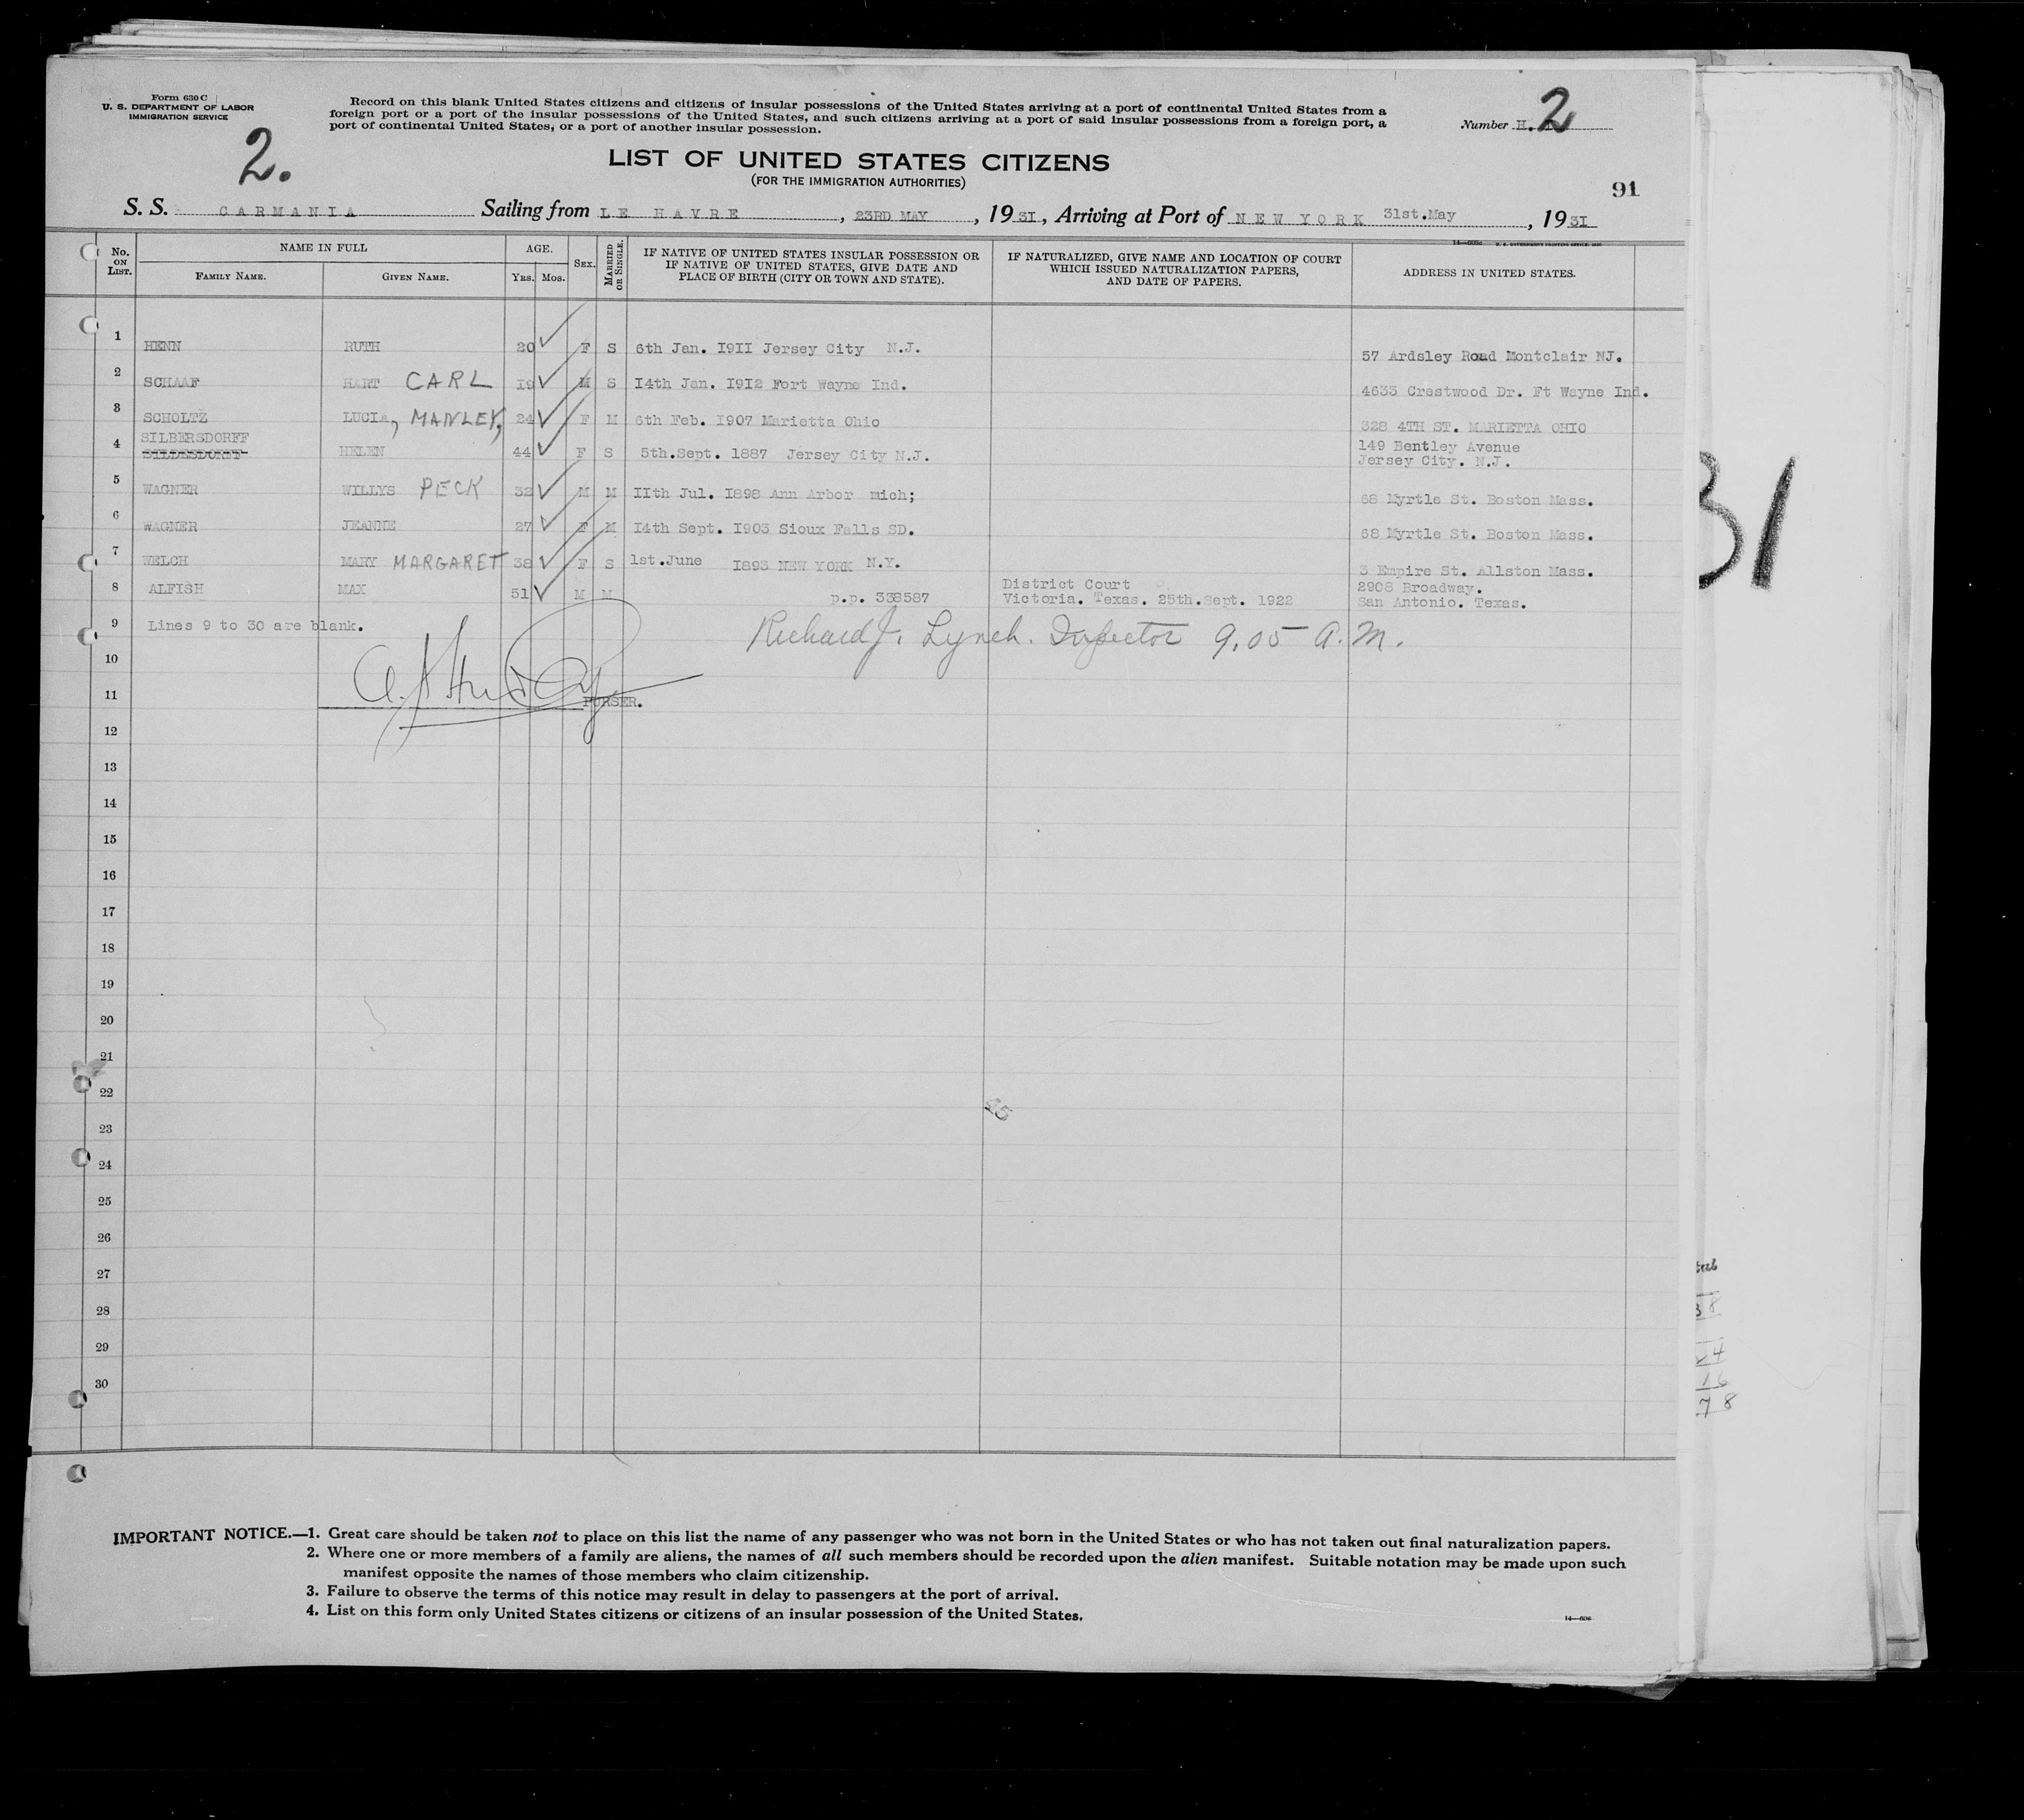 Form 630 C
U. S. DEPARTMENT OF LABOR
IMMIGRATION SERVICE
Record on this blank United States citizens and citizens of insular possessions of the United States arriving at a port of continental United States from a
foreign port or a port of the insular possessions of the United States, and such citizens arriving at a port of said insular possessions from a foreign port, a
port of continental United States, or a port of another insular possession.
Number H. 2
2.
LIST OF UNITED STATES CITIZENS
(FOR THE IMMIGRATION AUTHORITIES)
91
S. S. CARMANIA Sailing from LE HAVRE, 23RD MAY, 19 31, Arriving at Port of NEW YORK 31st.May, 19 31
No. ON LIST. NAME IN FULL AGE. SEX. MARRIED OR SINGLE. IF NATIVE OF UNITED STATES INSULAR POSSESSION OR IF NATIVE OF UNITED STATES, GIVE DATE AND PLACE OF BIRTH (CITY OR TOWN AND STATE). IF NATURALIZED, GIVE NAME AND LOCATION OF COURT WHICH ISSUED NATURALIZATION PAPERS, AND DATE OF PAPERS. ADDRESS IN UNITED STATES.
FAMILY NAME. GIVEN NAME. YRS. MOS.
1 HENN RUTH 20 F S 6th Jan. I9II Jersey City N.J. 57 Ardsley Road Montclair NJ.
2 SCHAAF HART CARL I9 M S I4th Jan. I9I2 Fort Wayne Ind. 4633 Crestwood Dr. Ft Wayne Ind.
3 SCHOLTZ LUCIA, MANLEY, 24 F M 6th Feb. I907 Marietta Ohio 328 4TH ST. MARIETTA OHIO
SILBERSDORFF 149 Bentley Avenue
4 SILDESDORFF HELEN 44 F S 5th.Sept. 1887 Jersey City N.J. Jersey City. N.J.
5 WAGNER WILLYS PECK 32 M M IIth Jul. I898 Ann Arbor mich; 68 Myrtle St. Boston Mass.
6 WAGNER JEANNE 27 F M I4th Sept. I903 Sioux Falls SD. 68 Myrtle St. Boston Mass.
7 WELCH MARY MARGARET 38 F S 1st.June I893 NEW YORK N.Y. 3 Empire St. Allston Mass.
8 ALFISH MAX 51 M M p.p. 338587 District Court 2908 Broadway.
Victoria. Texas. 25th.Sept. 1922 San Antonio. Texas.
9 Lines 9 to 30 are blank. Richard J. Lynch. Inspector 9.05 A.M.
10
11 PURSER.
12
13
14
15
16
17
18
19
20
21
22
23
24
25
26
27
28
29
30
IMPORTANT NOTICE.—1. Great care should be taken not to place on this list the name of any passenger who was not born in the United States or who has not taken out final naturalization papers.
2. Where one or more members of a family are aliens, the names of all such members should be recorded upon the alien manifest. Suitable notation may be made upon such
manifest opposite the names of those members who claim citizenship.
3. Failure to observe the terms of this notice may result in delay to passengers at the port of arrival.
4. List on this form only United States citizens or citizens of an insular possession of the United States.
14—606
31